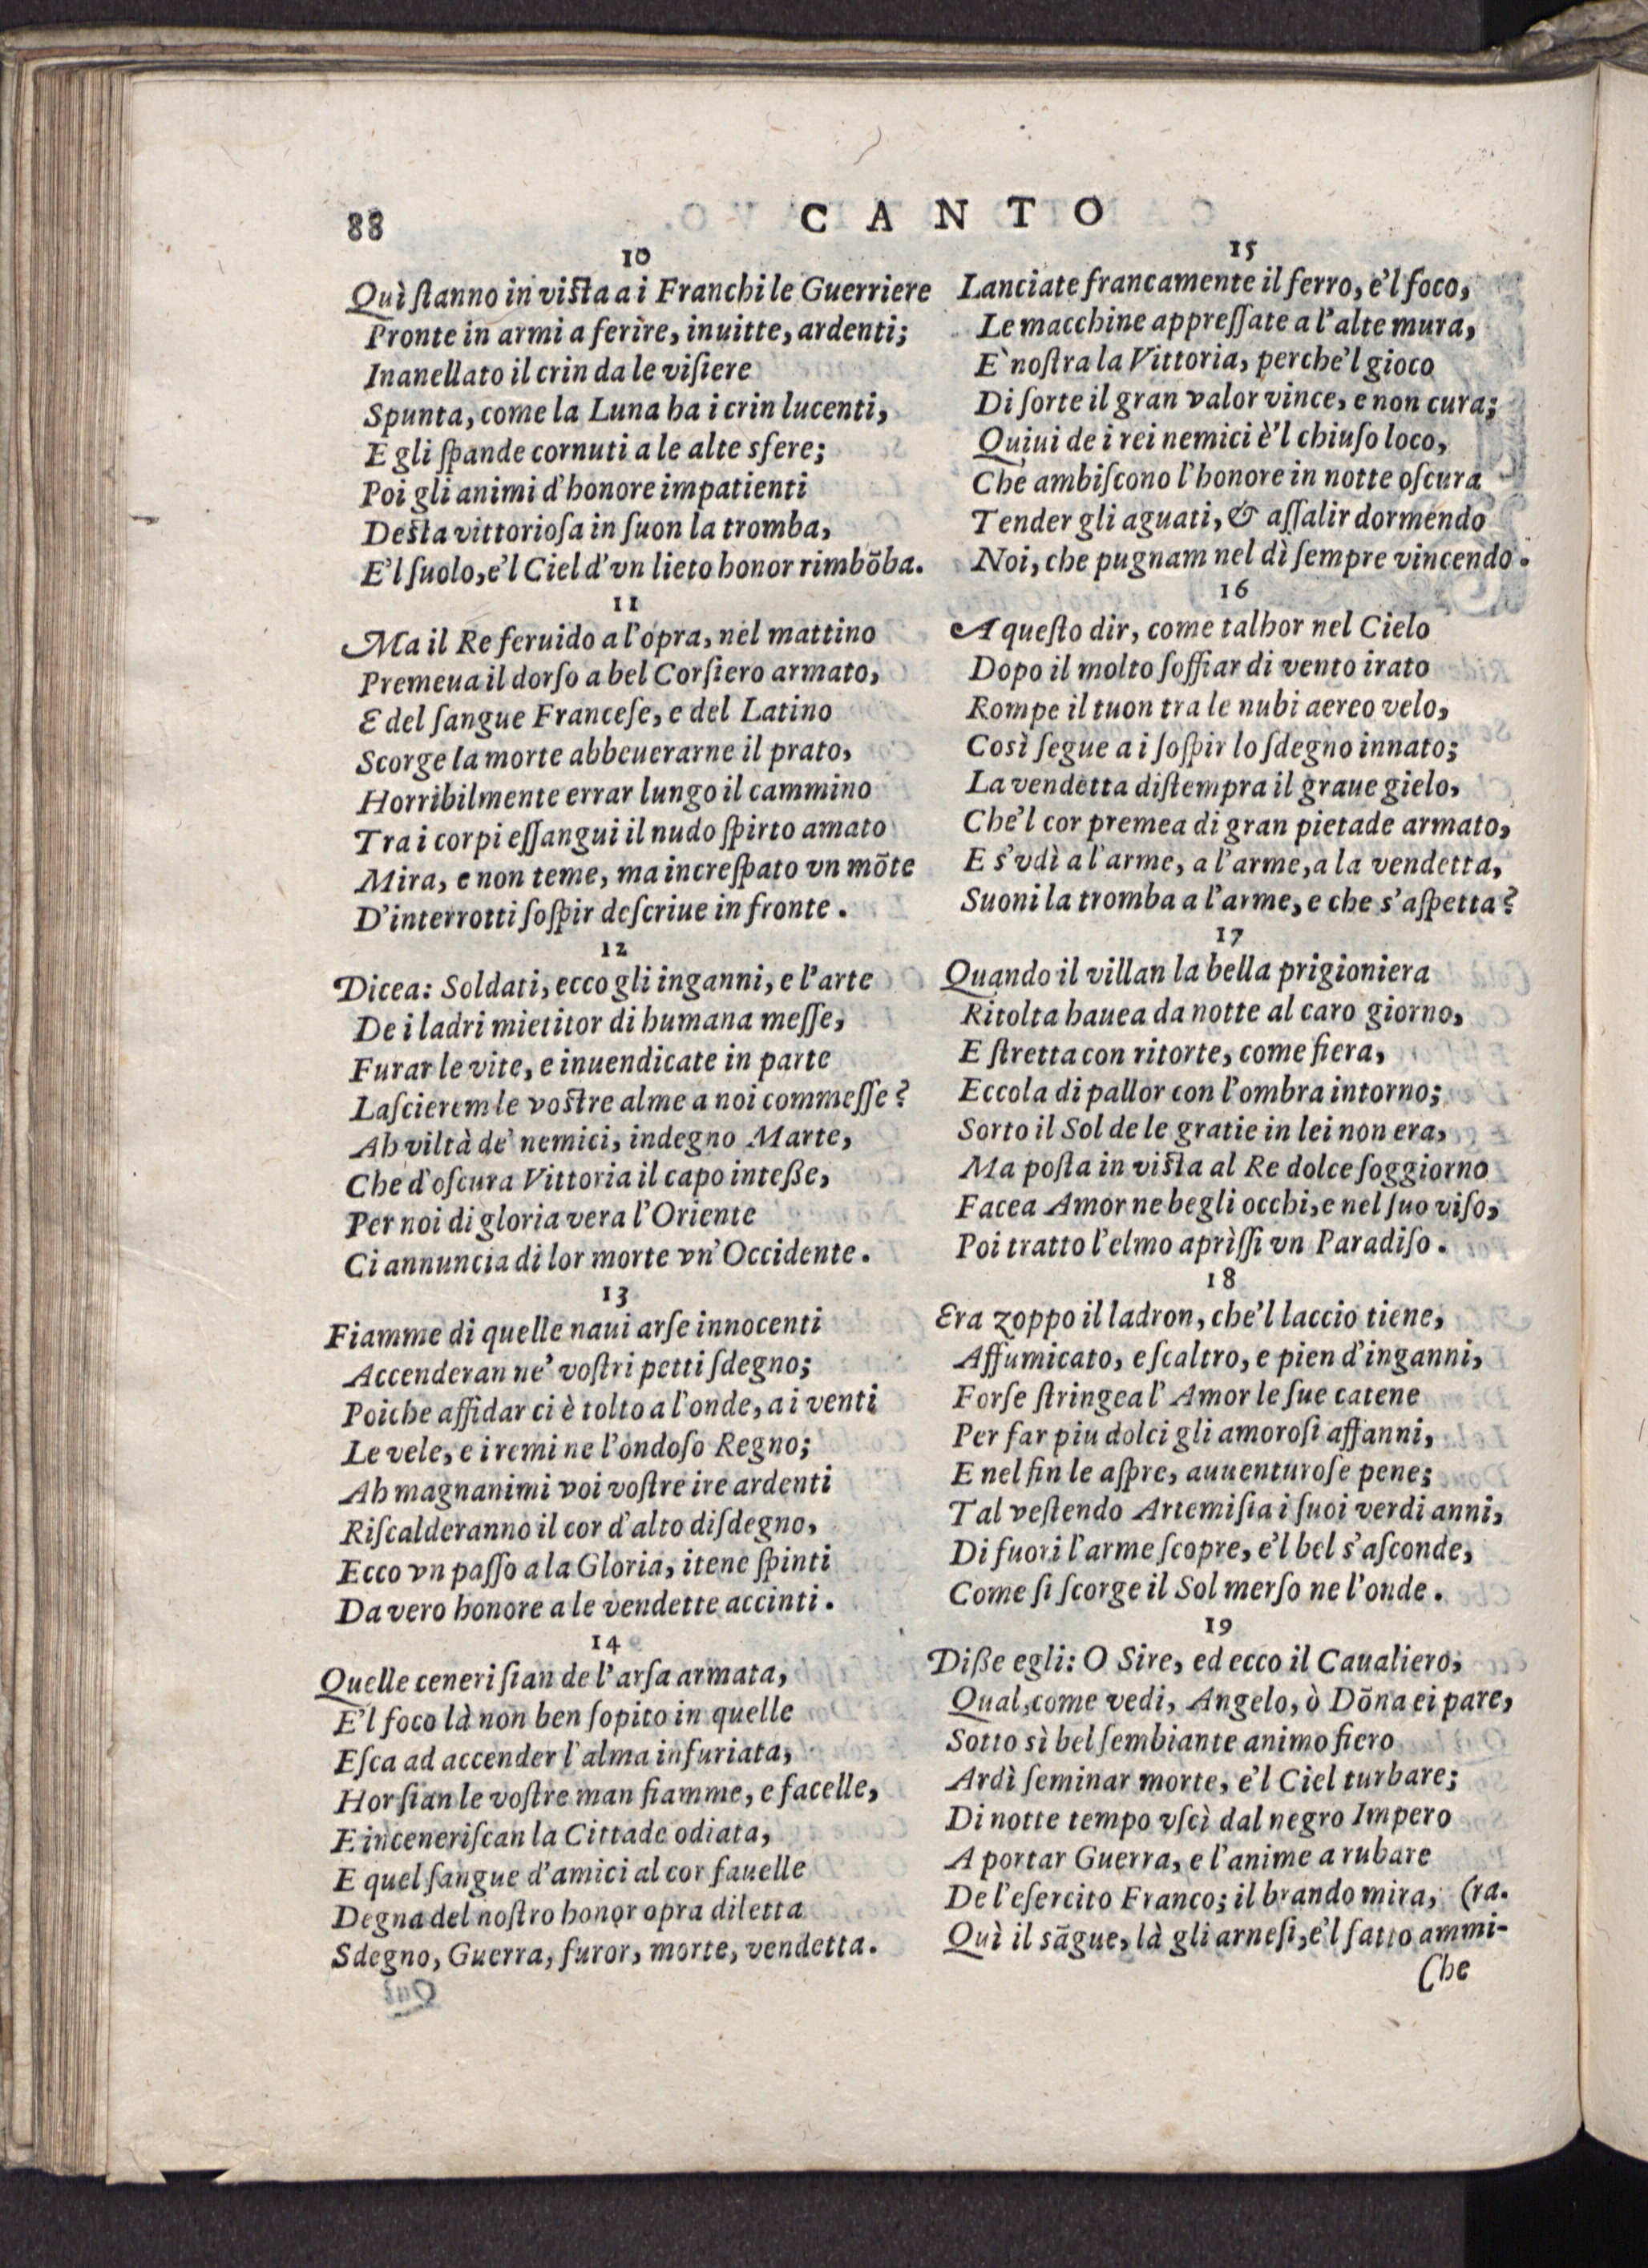 88
CANTO
10
Quì ſtanno in viſta a i Franchi le Guerriere
Pronte in armi a ferire, inuitte, ardenti;
Inanellato il crin da le viſiere
Spunta, come la Luna ha i crin lucenti,
E gli ſpande cornuti a le alte sfere;
Poi gli animi d'honore impatienti
Deſta vittorioſa in ſuon la tromba,
E'l ſuolo, e'l Ciel d'vn lieto honor rimbōba.
11
Ma il Re feruido a l'opra, nel mattino
Premeua il dorſo a bel Corſiero armato,
E del ſangue Franceſe, e del Latino
Scorge la morte abbeuerarne il prato,
Horribilmente errar lungo il cammino
Tra i corpi eſſangui il nudo ſpirto amato
Mira, e non teme, ma increſpato vn mōte
D'interrotti ſoſpir deſcriue in fronte.
12
Dicea: Soldati, ecco gli inganni, e l'arte
De i ladri mietitor di humana meſſe,
Furar le vite, e inuendicate in parte
Laſcierem le voſtre alme a noi commeſſe?
Ah viltà de' nemici, indegno Marte,
Che d'oſcura Vittoria il capo inteße,
Per noi di gloria vera l'Oriente
Ci annuncia di lor morte vn' Occidente.
13
Fiamme di quelle naui arſe innocenti
Accenderan ne' voſtri petti ſdegno;
Poiche affidar ci è tolto a l'onde, a i venti
Le vele, e i remi ne l'ondoſo Regno;
Ah magnanimi voi voſtre ire ardenti
Riſcalderanno il cor d'alto diſdegno,
Ecco vn paſſo a la Gloria, itene ſpinti
Da vero honore a le vendette accinti.
14
Quelle ceneri ſian de l'arſa armata,
E'l foco là non ben ſopito in quelle
Eſca ad accender l'alma infuriata,
Hor ſian le voſtre man fiamme, e facelle,
E inceneriſcan la Cittade odiata,
E quel ſangue d'amici al cor fauelle
Degna del noſtro honor opra diletta
Sdegno, Guerra, furor, morte, vendetta.
15
Lanciate francamente il ferro, e'l foco,
Le macchine appreſſate a l'alte mura,
E' noſtra la Vittoria, perche'l gioco
Di ſorte il gran valor vince, e non cura;
Quiui de i rei nemici è'l chiuſo loco,
Che ambiſcono l'honore in notte oſcura
Tender gli aguati, & aſſalir dormendo
Noi, che pugnam nel dì ſempre vincendo.
16
A queſto dir, come talhor nel Cielo
Dopo il molto ſoffiar di vento irato
Rompe il tuon tra le nubi aereo velo,
Così ſegue a i ſoſpir lo ſdegno innato;
La vendetta diſtempra il graue gielo,
Che'l cor premea di gran pietade armato,
E s'vdì a l'arme, a l'arme, a la vendetta,
Suoni la tromba a l'arme, e che s'aſpetta?
17
Quando il villan la bella prigioniera
Ritolta hauea da notte al caro giorno,
E ſtretta con ritorte, come fiera,
Eccola di pallor con l'ombra intorno;
Sorto il Sol de le gratie in lei non era,
Ma poſta in viſta al Re dolce ſoggiorno
Facea Amor ne begli occhi, e nel ſuo viſo,
Poi tratto l'elmo aprìſſi vn Paradiſo.
18
Era zoppo il ladron, che'l laccio tiene,
Affumicato, e ſcaltro, e pien d'inganni,
Forſe ſtringea l'Amor le ſue catene
Per far piu dolci gli amoroſi affanni,
E nel fin le aſpre, auuenturoſe pene;
Tal veſtendo Artemiſia i ſuoi verdi anni,
Di fuori l'arme ſcopre, e'l bel s'aſconde,
Come ſi ſcorge il Sol merſo ne l'onde.
19
Diße egli: O Sire, ed ecco il Caualiero,
Qual, come vedi, Angelo, ò Dōna ei pare,
Sotto sì bel ſembiante animo fiero
Ardì ſeminar morte, e'l Ciel turbare;
Di notte tempo vſcì dal negro Impero
A portar Guerra, e l'anime a rubare
De l'eſercito Franco; il brando mira, (ra.
Quì il sāgue, là gli arneſi, e'l fatto ammi-
Che